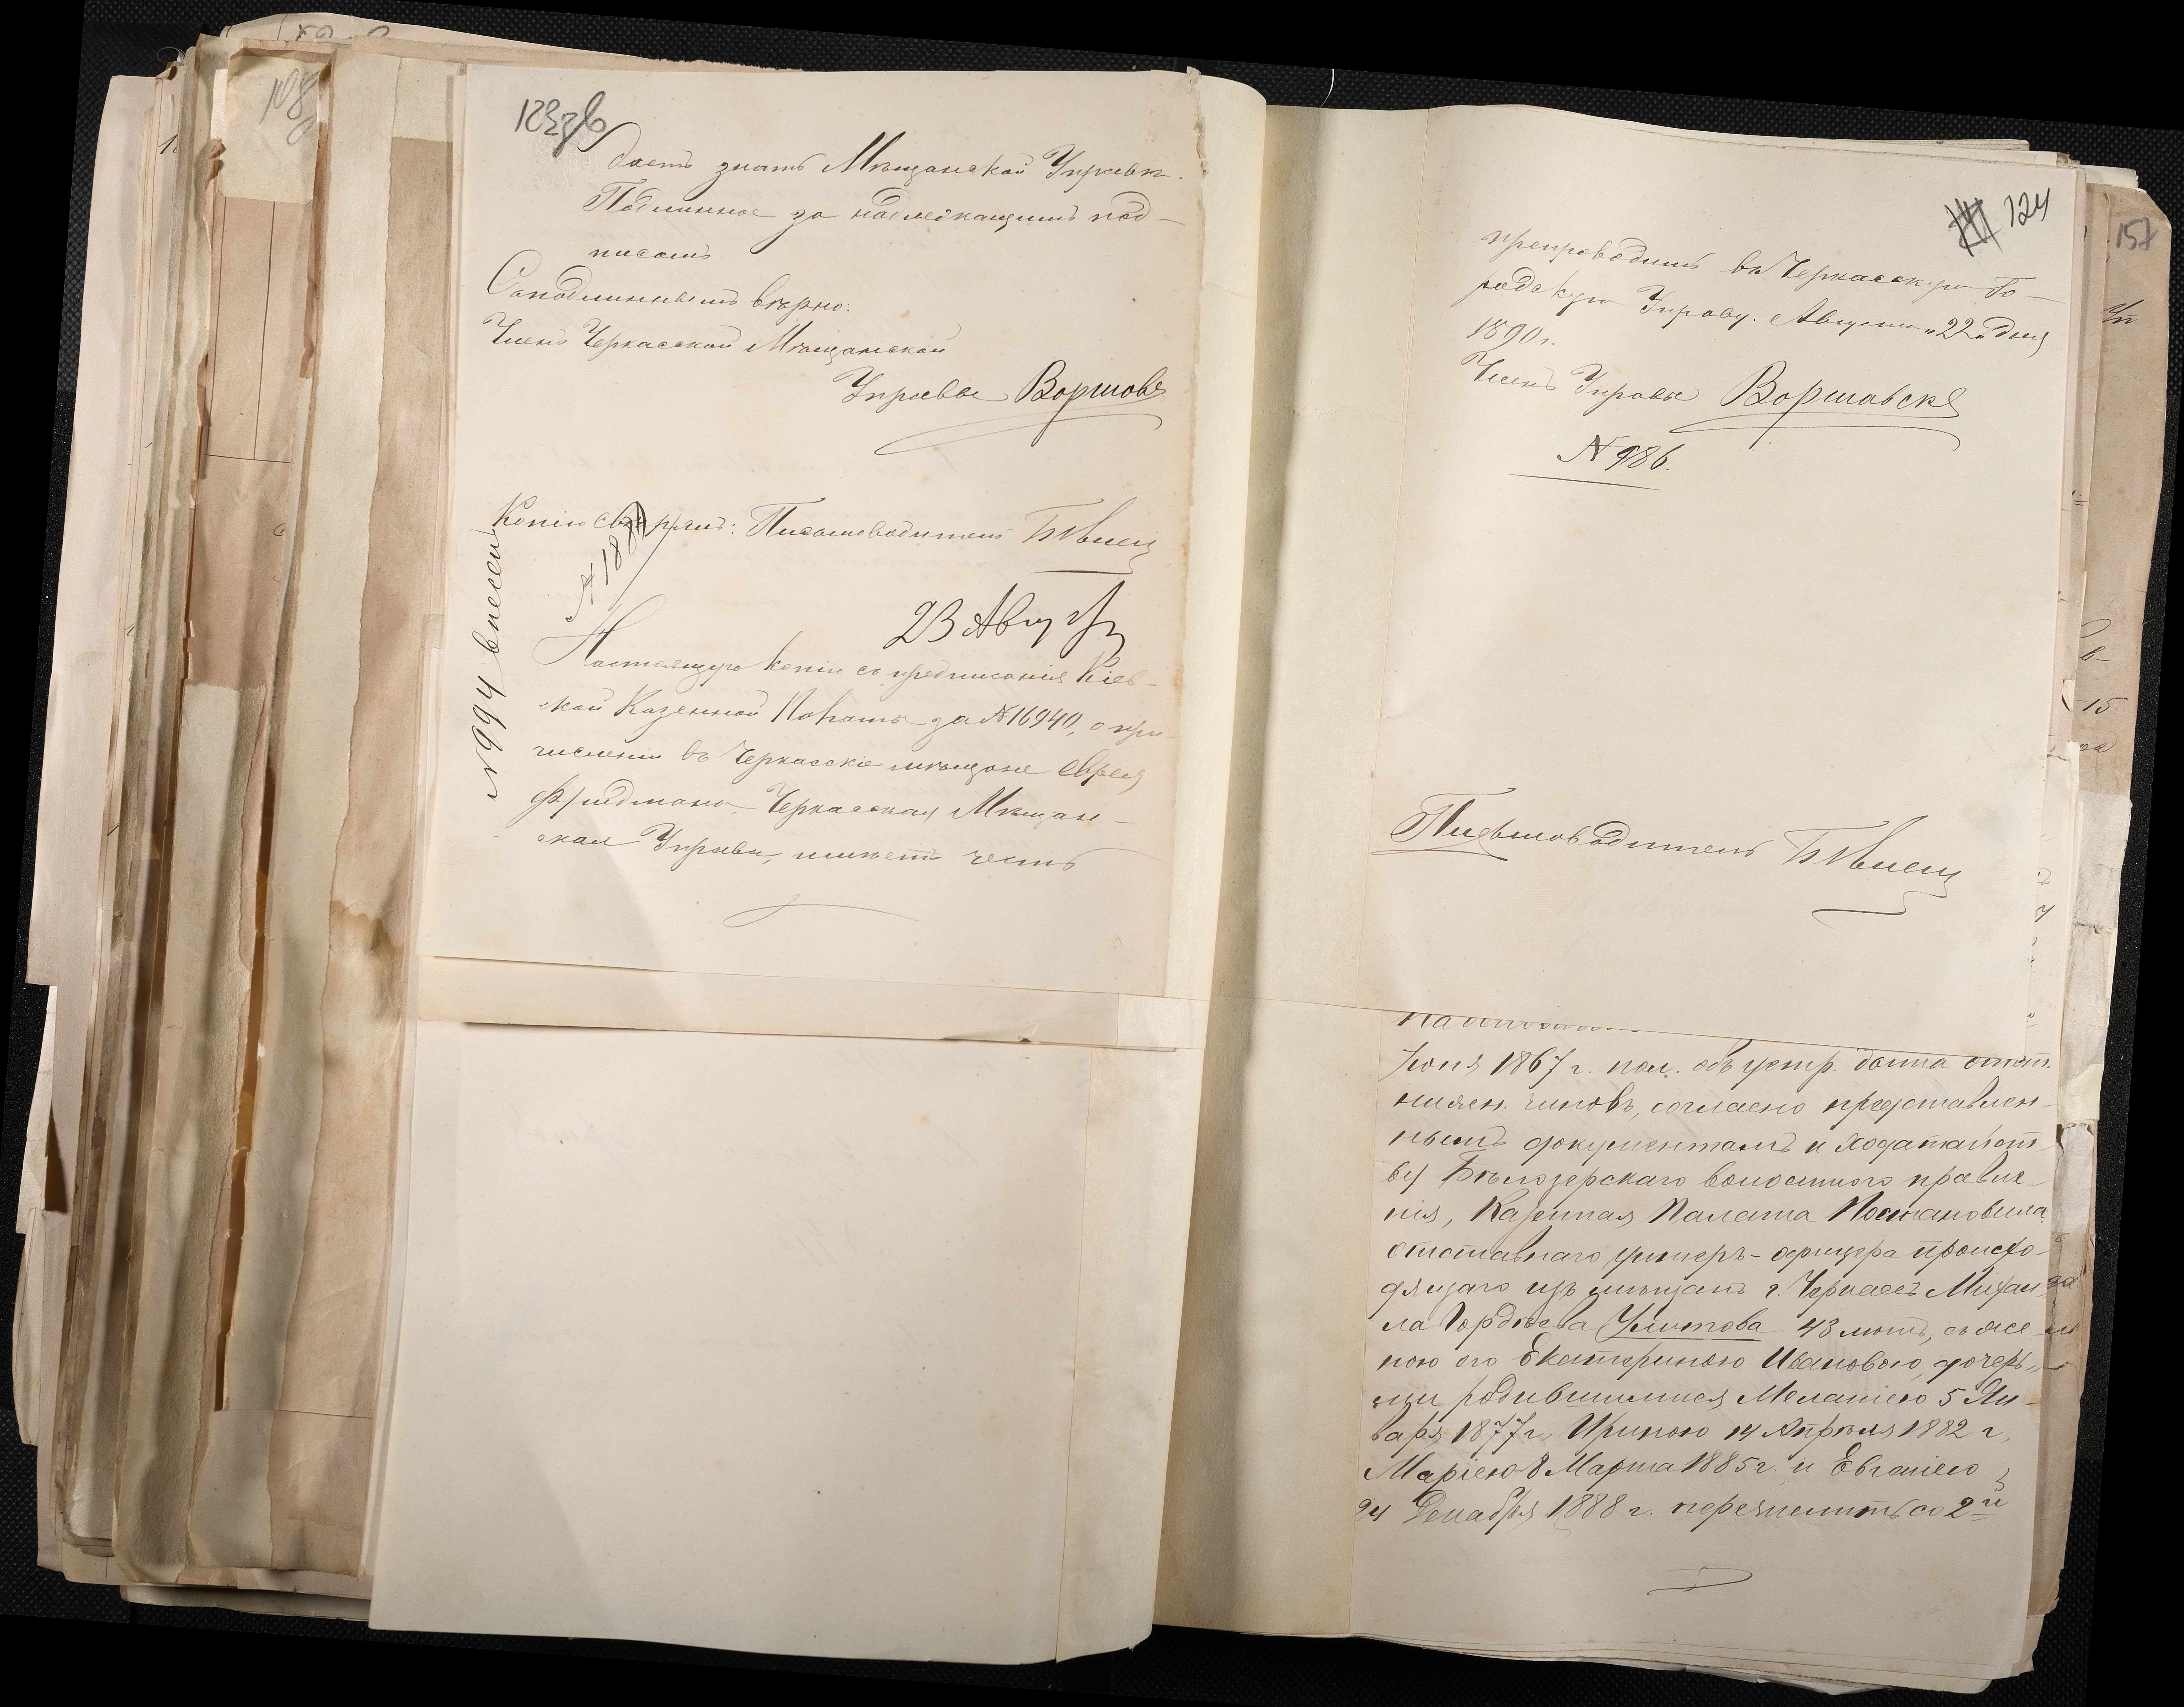 123 об
дастъ знать Мѣщанской Управѣ.
Подлинное за надлежащимъ под-
писомъ.
Съ подлиннымъ вѣрно:
Членъ Черкасской Мѣщанской
Управы
Копію свѣрялъ: Письмоводитель
23 Авгу
№ 994
Настоящую копію съ предписанія Кіев-
ской Казенной Палаты за № 16940, о при
численіи въ Черкасскіе мѣщане еврея
Фридмана, Черкасская Мѣщан-
ская Управа, имѣетъ честь
124
препроводить въ Черкасскую Го-
родскую Управу. Августа „22“ дня
1890 г.
Членъ Управы
№ 986.
Письмоводитель
Іюня 1867 г. пол. объ устр. быта отст.
нижн. чиновъ, согласно представлен-
нымъ документамъ и ходатайст
ву Бѣлозерскаго волостного правле-
нія, Казенная Палата Постановила
отставнаго унтеръ-офицера происхо-
дящаго изъ мѣщанъ г. Черкасъ Михаи
ла Гордѣева Улитова 43 лѣтъ, съ же-
ною его Екатериною Ивановою, дочерь-
ми родившимися Меланіею 5 Ян-
варя 1877 г, Ириною 14 Апрѣля 1882 г,
Маріею 8 Марта 1885 г. и Евгеніею
24 Декабря 1888 г. перечислить со 2й
158
15